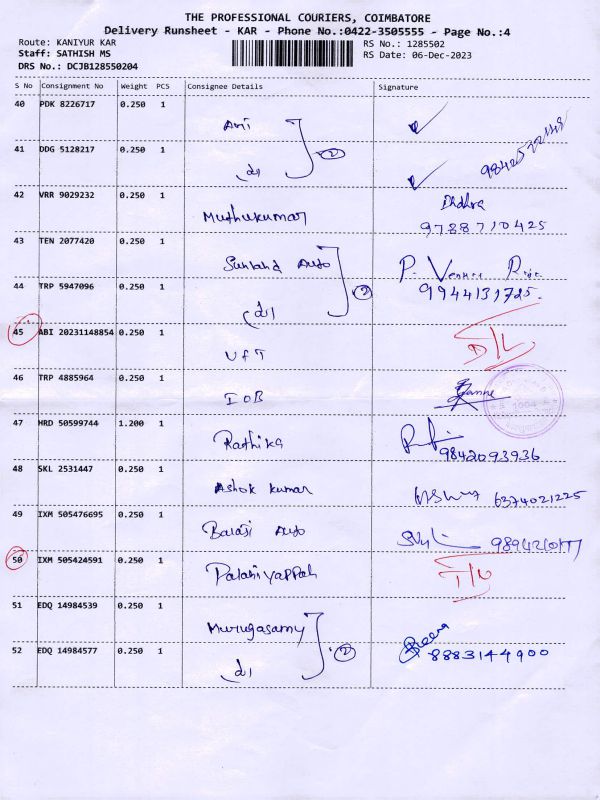 THE PROFESSIONAL COURIERS, COIMBATORE
Delivery Runsheet - KAR - Phone No.:0422-3505555 - Page No.:4
Route: KANIYUR KAR
RS No.: 1285502
Staff: SATHISH MS
RS Date: 06-Dec-2023
DRS No.: DCJB128550204
S No Consignment No Weight PCS Consignee Details Signature
40 PDK 8226717 0.250 1
Ani
2
41 DDG 5128217 0.250 1
do
42 VRR 9029232 0.250 1
Muthukumar
9788710425
43 TEN 2077420 0.250 1
Sunland Auto
2
44 TRP 5947096 0.250 1
9944131725.
do
45 ABI 20231148854 0.250 1
UFT
D/L
46 TRP 4885964 0.250 1
IOB
47 HRD 50599744 1.200 1
Rathika
9842093936
48 SKL 2531447 0.250 1
Ashok kumar
6374021225
49 IXM 505476695 0.250 1
Balaji Auto
50 IXM 505424591 0.250 1
Palaniyappah
51 EDQ 14984539 0.250 1
Murugasamy
2
52 EDQ 14984577 0.250 1
do
8883144900